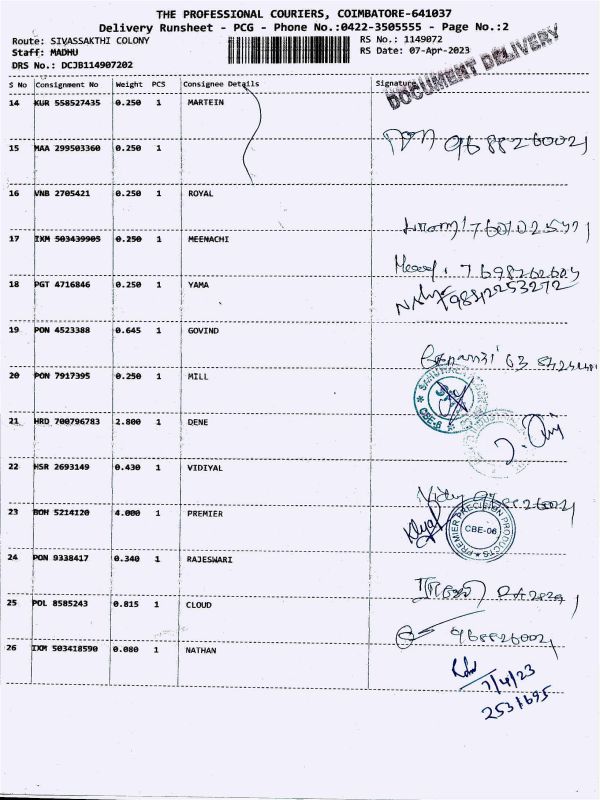 THE PROFESSIONAL COURIERS, COIMBATORE-641037
Delivery Runsheet - PCG - Phone No.:0422-3505555 - Page No.:2
Route: SIVASSAKTHI COLONY
RS No.: 1149072
Staff: MADHU
RS Date: 07-Apr-2023
DRS No.: DCJB114907202
DOCUMENT DELIVERY
S No Consignment No Weight PCS Consignee Details Signature
14 KUR 558527435 0.250 1 MARTEIN
15 MAA 299503360 0.250 1
9688260021
16 VNB 2705421 0.250 1 ROYAL
17 IXM 503439905 0.250 1 MEENACHI
18 PGT 4716846 0.250 1 YAMA
9842253272
19 PON 4523388 0.645 1 GOVIND
20 PON 7917395 0.250 1 MILL
CBE-6
21 HRD 700796783 2.800 1 DENE
22 HSR 2693149 0.430 1 VIDIYAL
23 BOM 5214120 4.000 1 PREMIER
PREMIER PRECISION PRODUCTS
CBE-06
24 PON 9338417 0.340 1 RAJESWARI
25 POL 8585243 0.815 1 CLOUD
26 IXM 503418590 0.080 1 NATHAN
7/4/23
2531695